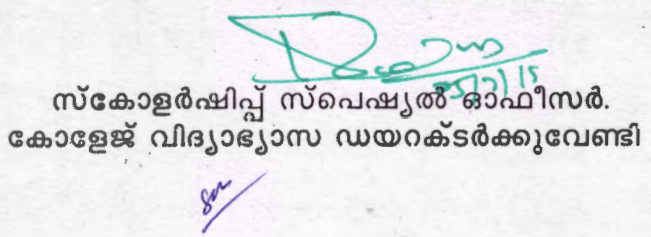 സ്കോളർഷിപ്പ് സ്പെഷ്യൽ ഓഫീസർ.
കോളേജ് വിദ്യാഭ്യാസ ഡയറക്ടർക്കുവേണ്ടി